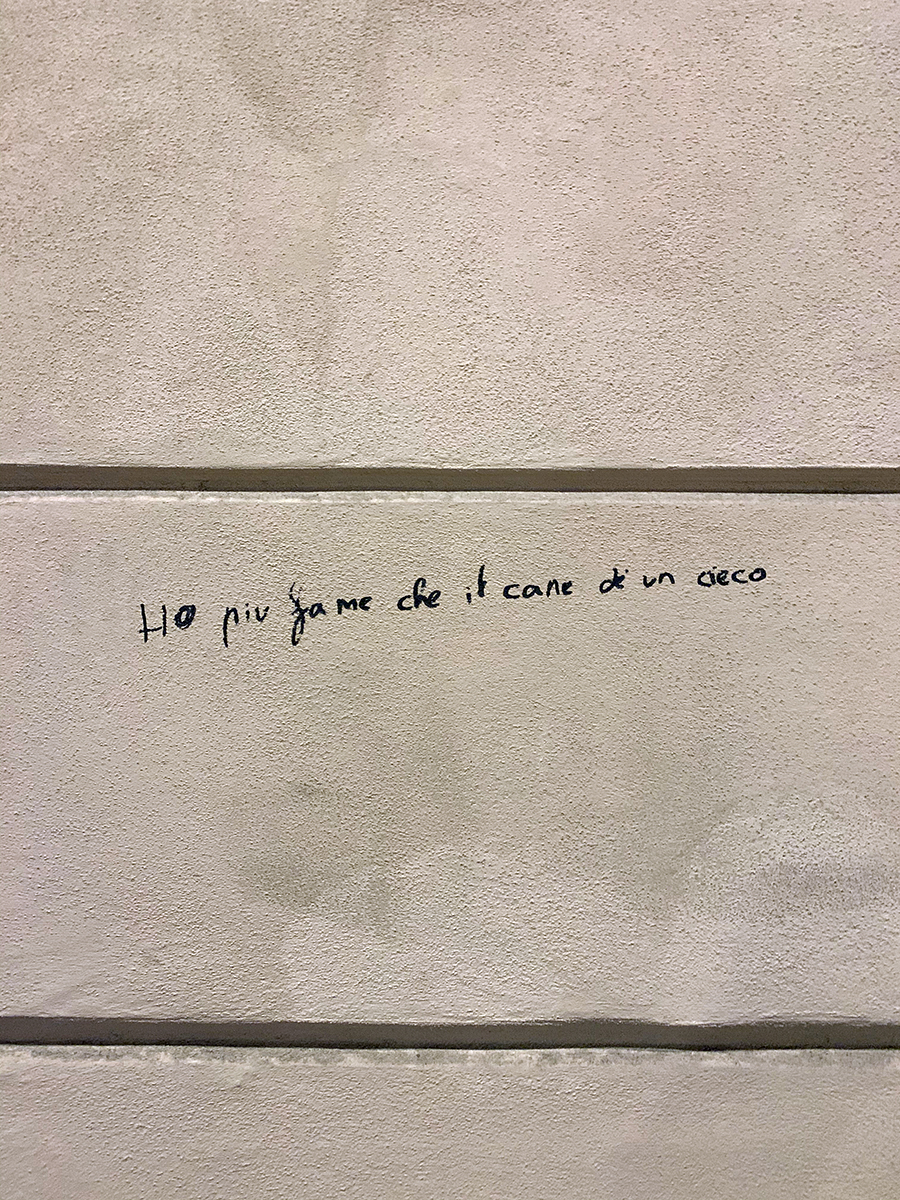 Ho piu fame che il cane di un cieco